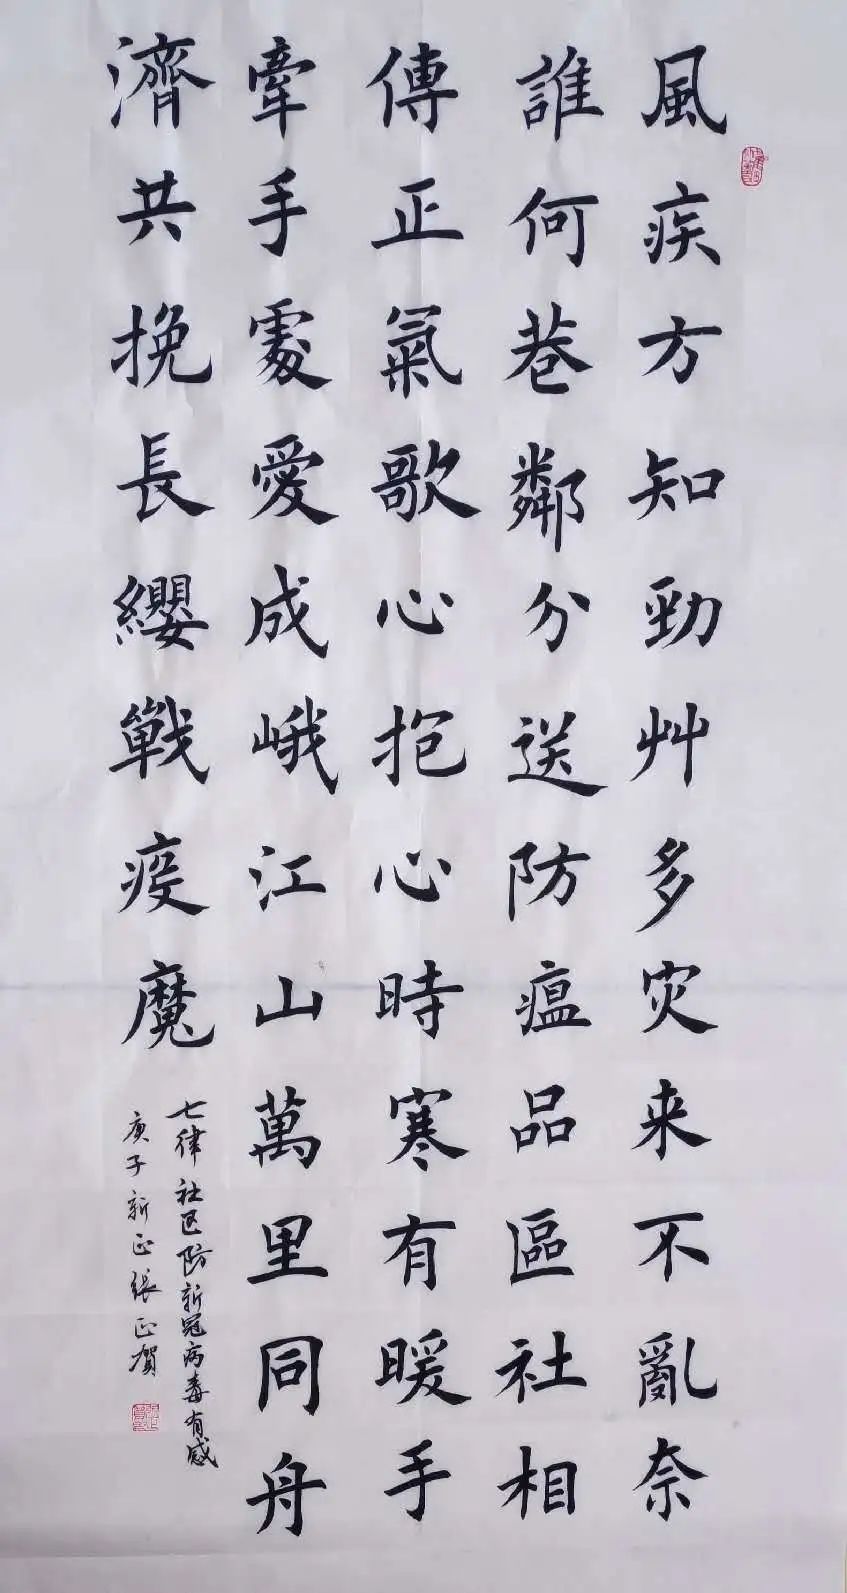 風疾方知勁艸多灾来不亂奈
誰何巷鄰分送防瘟品區社相
傳正氣歌心抱心時寒有暖手
牽手處愛成峨江山萬里同舟
濟共挽長纓戰疫魔
七律社区防新冠病毒有感
庚子新正張正賀